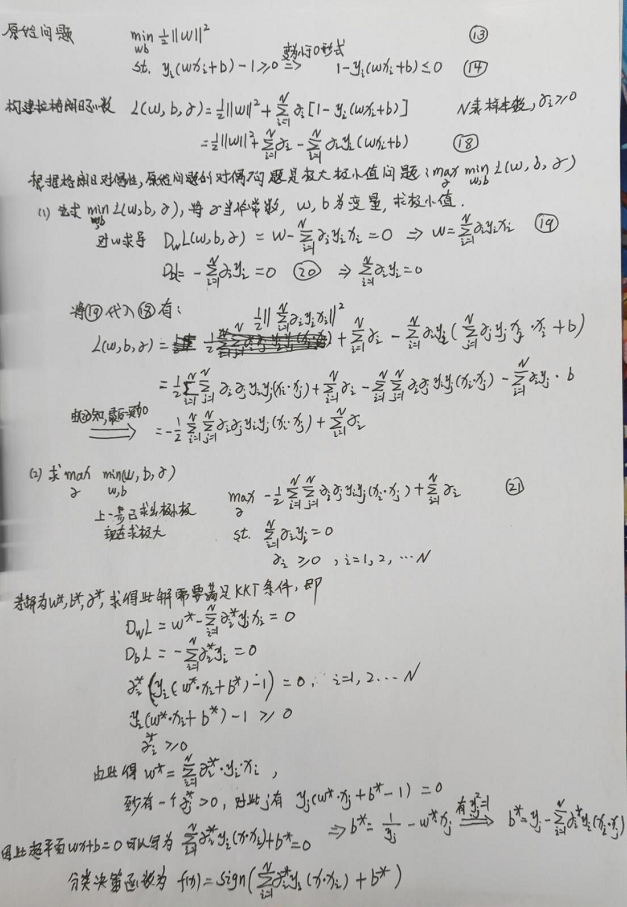 原始问题 min_{w,b} ½||w||² ⑬
st. y_i(wx_i+b)-1≥0 变小于0形式 ⇒ 1-y_i(wx_i+b)≤0 ⑭
构建拉格朗日函数 L(w,b,α)=½||w||²+∑_{i=1}^N α_i[1-y_i(wx_i+b)] N是样本数,α_i≥0
=½||w||²+∑_{i=1}^N α_i-∑_{i=1}^N α_i y_i(wx_i+b) ⑱
根据拉格朗日对偶性,原始问题的对偶问题是极大极小值问题:max_α min_{w,b} L(w,b,α)
(1) 先求 min_{w,b} L(w,b,α),将α当作常数,w,b为变量,求极小值.
对w求导 D_w L(w,b,α)=w-∑_{i=1}^N α_i y_i x_i=0 ⇒ w=∑_{i=1}^N α_i y_i x_i ⑲
D_b L=-∑_{i=1}^N α_i y_i=0 ⑳ ⇒ ∑_{i=1}^N α_i y_i=0
将⑲代入⑱有:
L(w,b,α)=½||∑_{i=1}^N α_i y_i x_i||²+∑_{i=1}^N α_i-∑_{i=1}^N α_i y_i(∑_{j=1}^N α_j y_j x_j·x_i+b)
=½∑_{i=1}^N∑_{j=1}^N α_i α_j y_i y_j(x_i·x_j)+∑_{i=1}^N α_i-∑_{i=1}^N∑_{j=1}^N α_i α_j y_i y_j(x_i·x_j)-∑_{i=1}^N α_i y_i·b
由⑳知,最后一项为0 ⇒ =-½∑_{i=1}^N∑_{j=1}^N α_i α_j y_i y_j(x_i·x_j)+∑_{i=1}^N α_i
(2) 求max_α min_{w,b}(w,b,α)
上一步已求出极小极
现在求极大
max_α -½∑_{i=1}^N∑_{j=1}^N α_i α_j y_i y_j(x_i·x_j)+∑_{i=1}^N α_i ㉑
st. ∑_{i=1}^N α_i y_i=0
α_i≥0,i=1,2,…N
若解为w*,b*,α*,求得此解需要满足KKT条件,即
D_w L=w*-∑_{i=1}^N α_i* y_i x_i=0
D_b L=-∑_{i=1}^N α_i* y_i=0
α_i*(y_i(w*·x_i+b*)-1)=0,i=1,2…N
y_i(w*·x_i+b*)-1≥0
α_i*≥0
由此得 w*=∑_{i=1}^N α_i*·y_i·x_i,
至少有一个α_j*>0,对此j有 y_j(w*·x_j+b*-1)=0
⇒ b*=1/y_j-w*x_j 有y_j²=1 ⇒ b*=y_j-∑_{i=1}^N α_i* y_i(x_i·x_j)
因此超平面wx+b=0可以写为∑_{i=1}^N α_i* y_i(x·x_i)+b*=0
分类决策函数为 f(x)=sign(∑_{i=1}^N α_i* y_i(x·x_i)+b*)